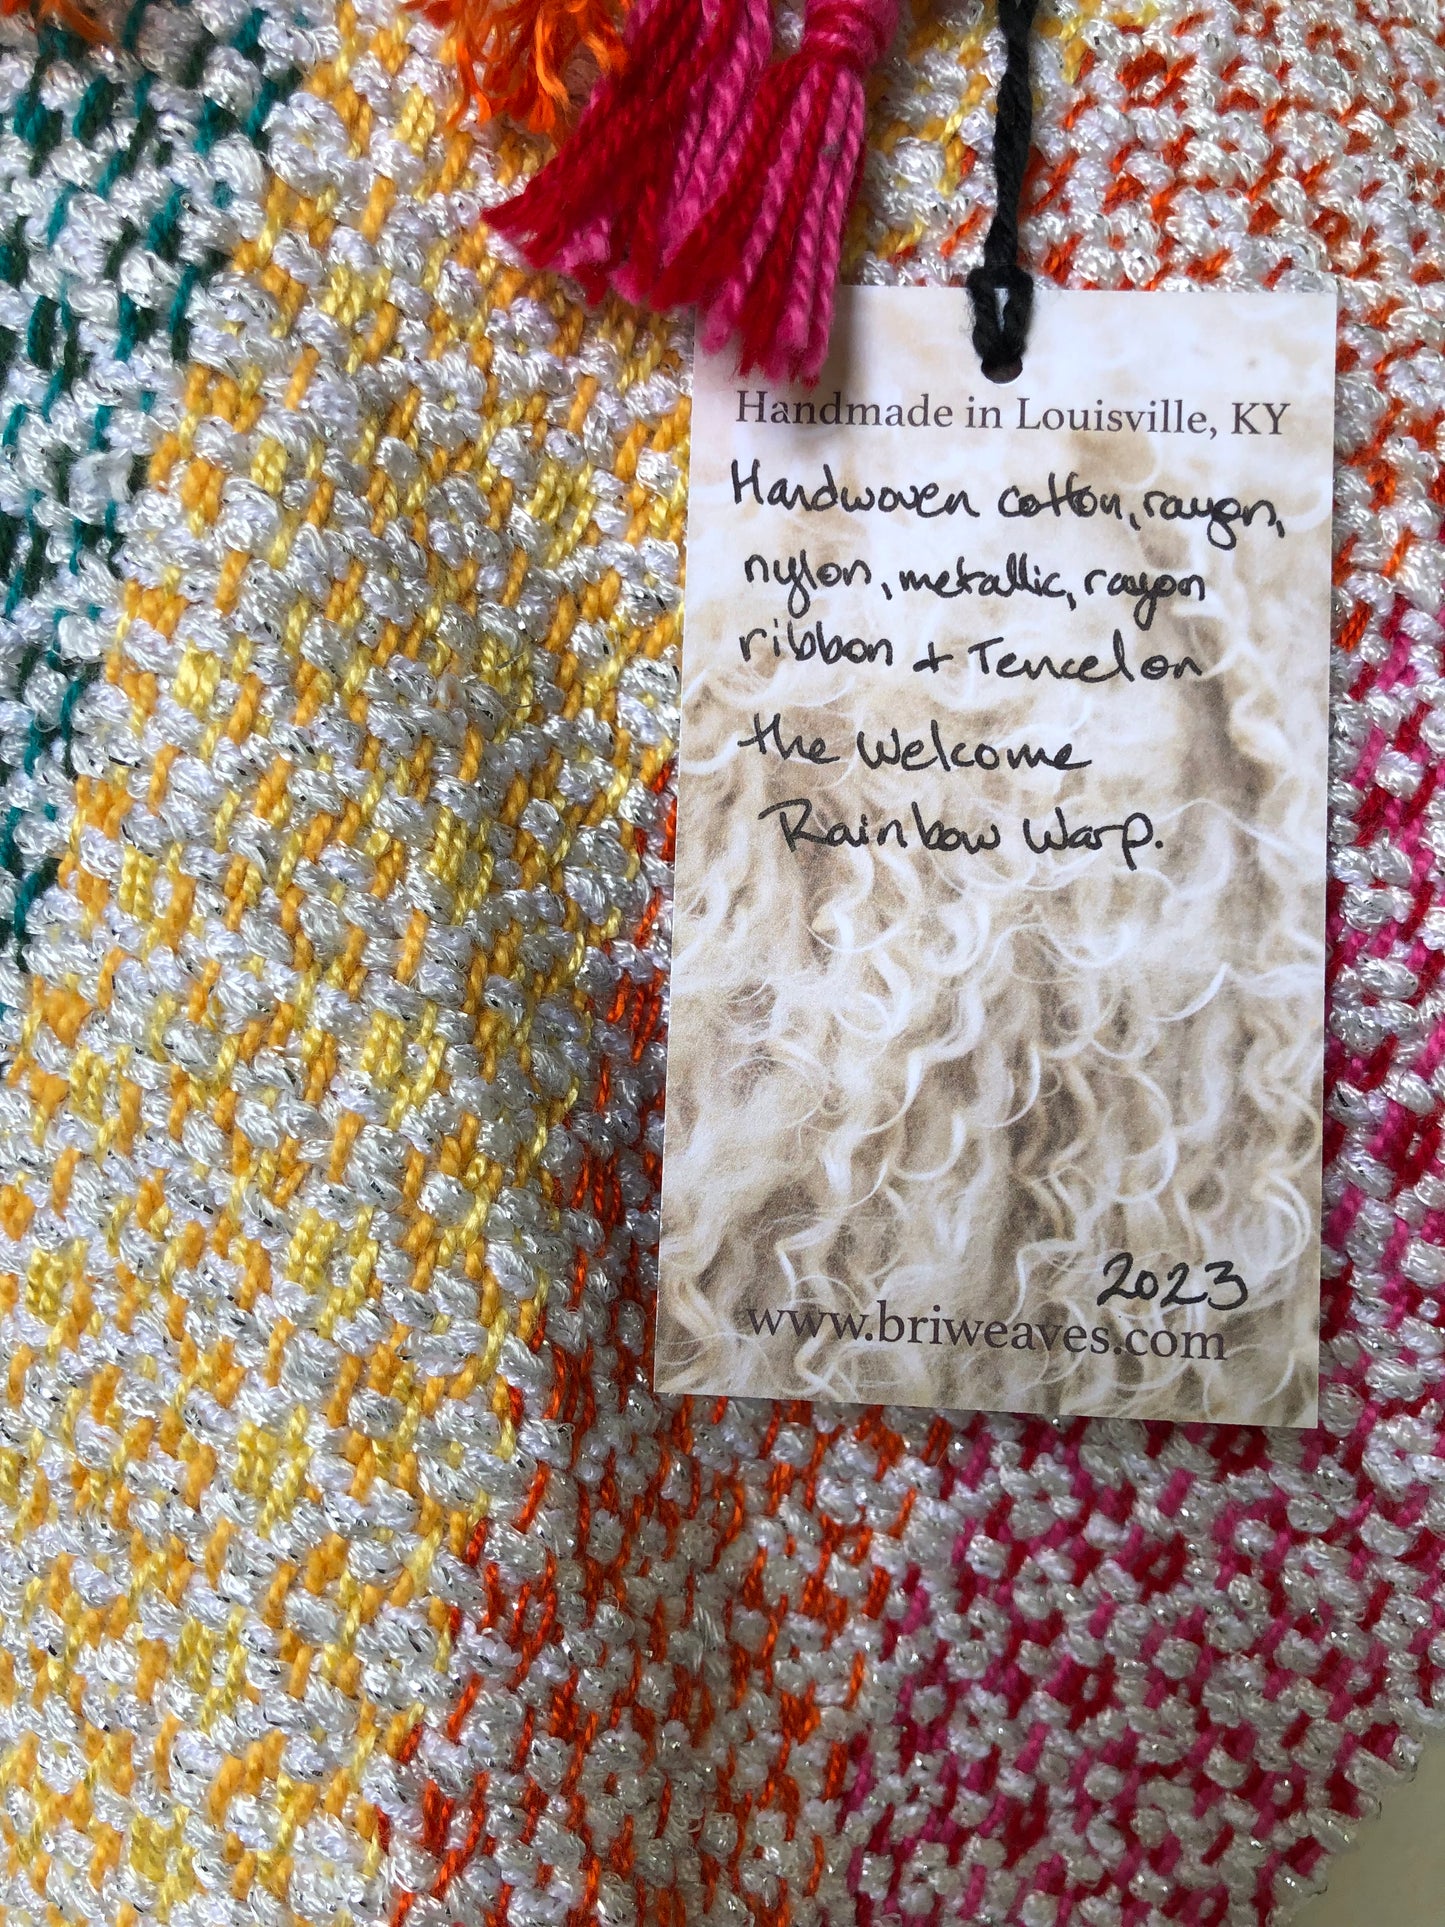 Handmade in Louisville, KY
Handwoven cotton, rayon,
nylon, metallic, rayon
ribbon + Tencel on
the Welcome
Rainbow Warp.
2023
www.briweaves.com